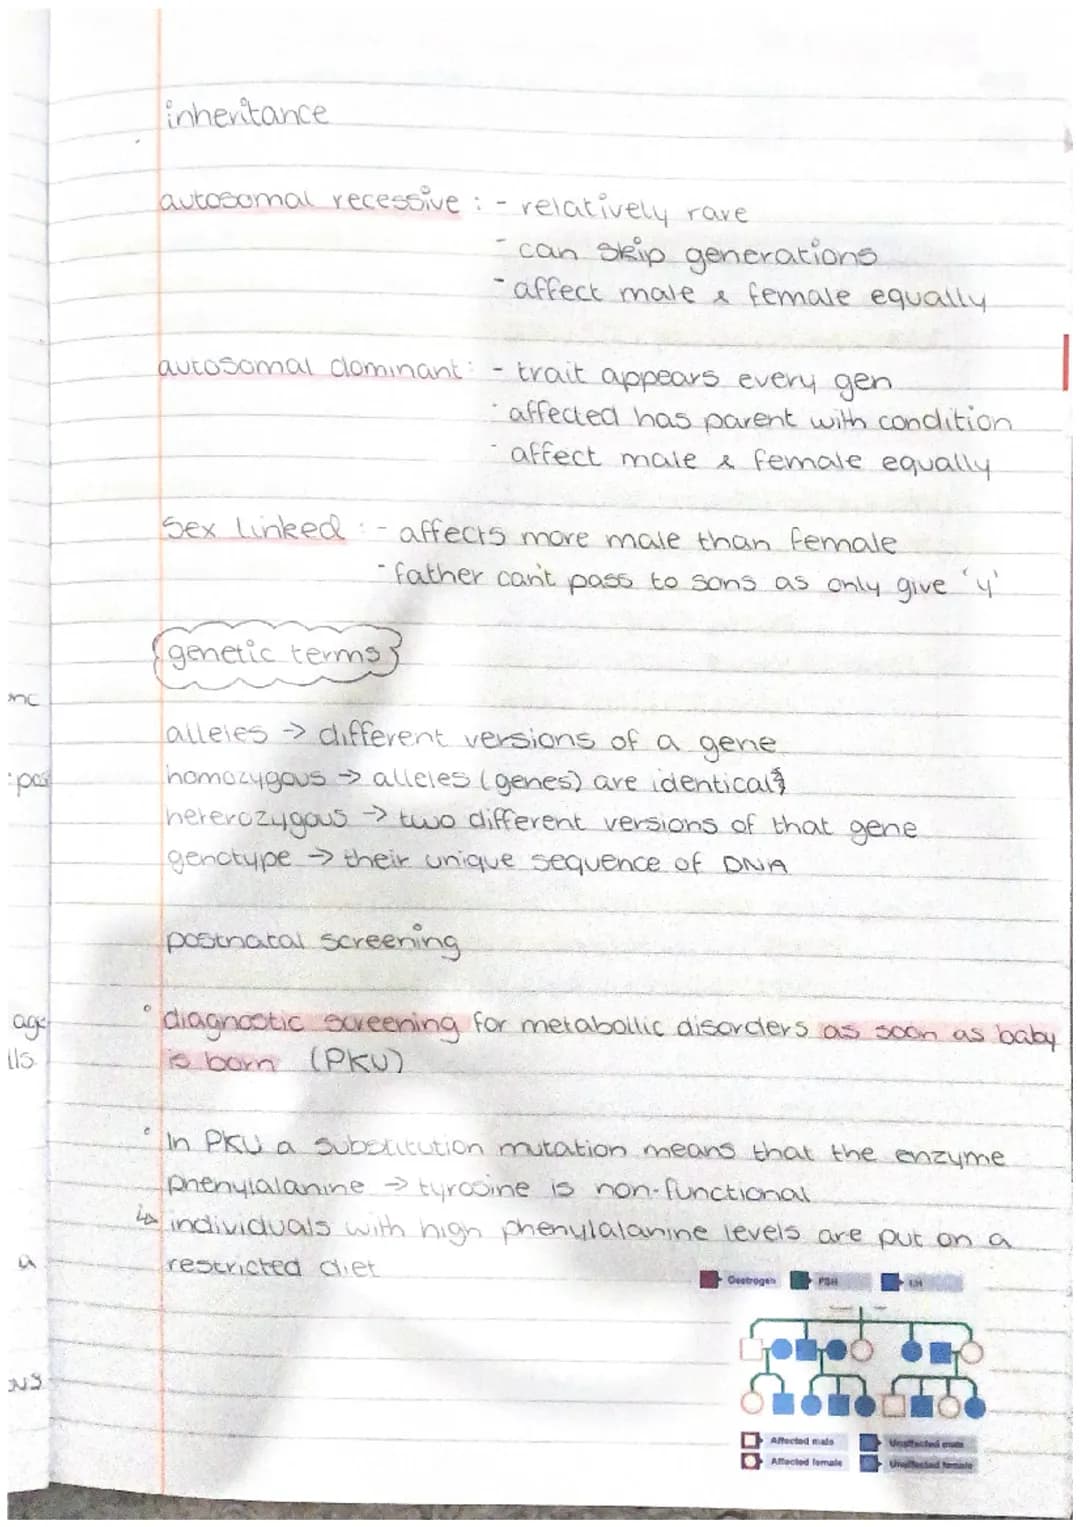 inheritance
autosomal recessive : - relatively rare
- can skip generations
- affect male & female equally
autosomal dominant : - trait appears every gen
- affected has parent with condition
- affect male & female equally
Sex linked : - affects more male than female
- father can't pass to sons as only give 'y'
genetic terms
alleles → different versions of a gene
homozygous → alleles (genes) are identical
heterozygous → two different versions of that gene
genotype → their unique sequence of DNA
postnatal screening
diagnostic screening for metabollic disorders as soon as baby
is born (PKU)
In PKU a substitution mutation means that the enzyme
phenylalanine → tyrosine is non-functional
↳ individuals with high phenylalanine levels are put on a
restricted diet
Oestrogen FSH LH
Affected male Unaffected male
Affected female Unaffected female
age